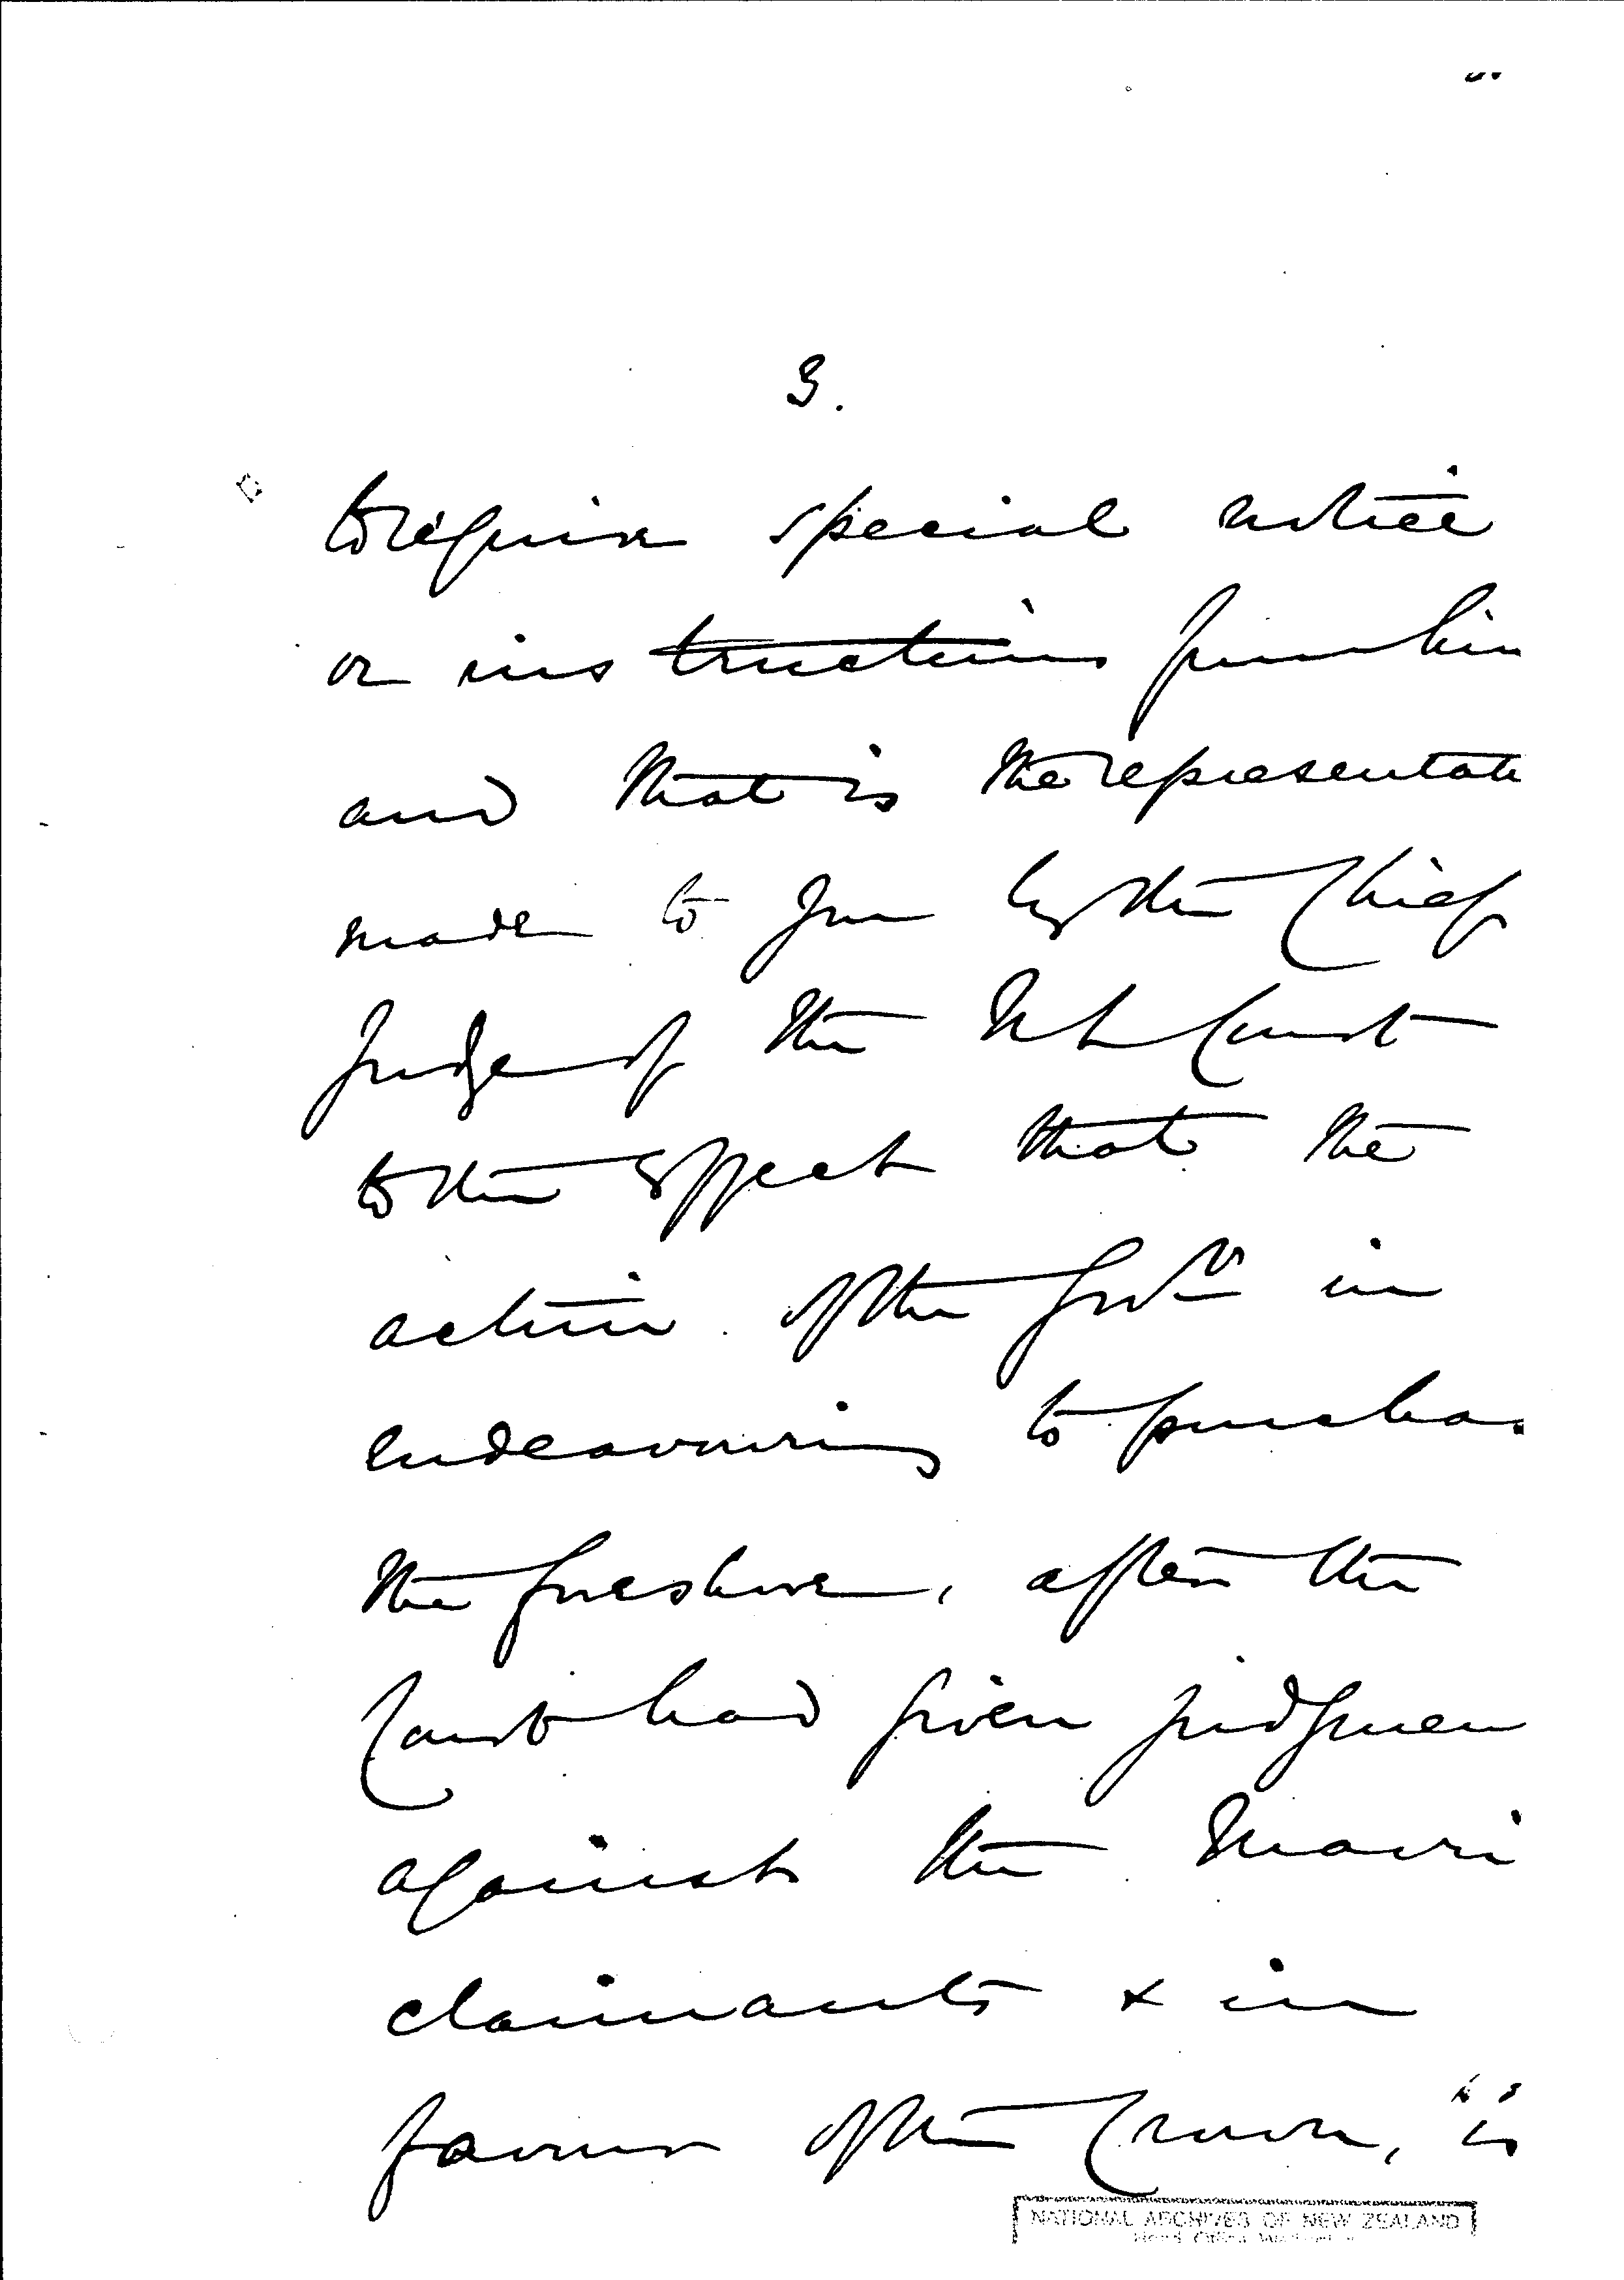 3.
to require special notice
or instructions from him
and that is the representati
made to you by the Chief
Judge of the N L Court
to the effect that the
action of the Govt in
endeavouring to purchas
the foreshore, after the
Court had given judgmen
against the Maori
claimants & in
favour of the Crown, "is
NATIONAL ARCHIVES OF NEW ZEALAND
Head Office